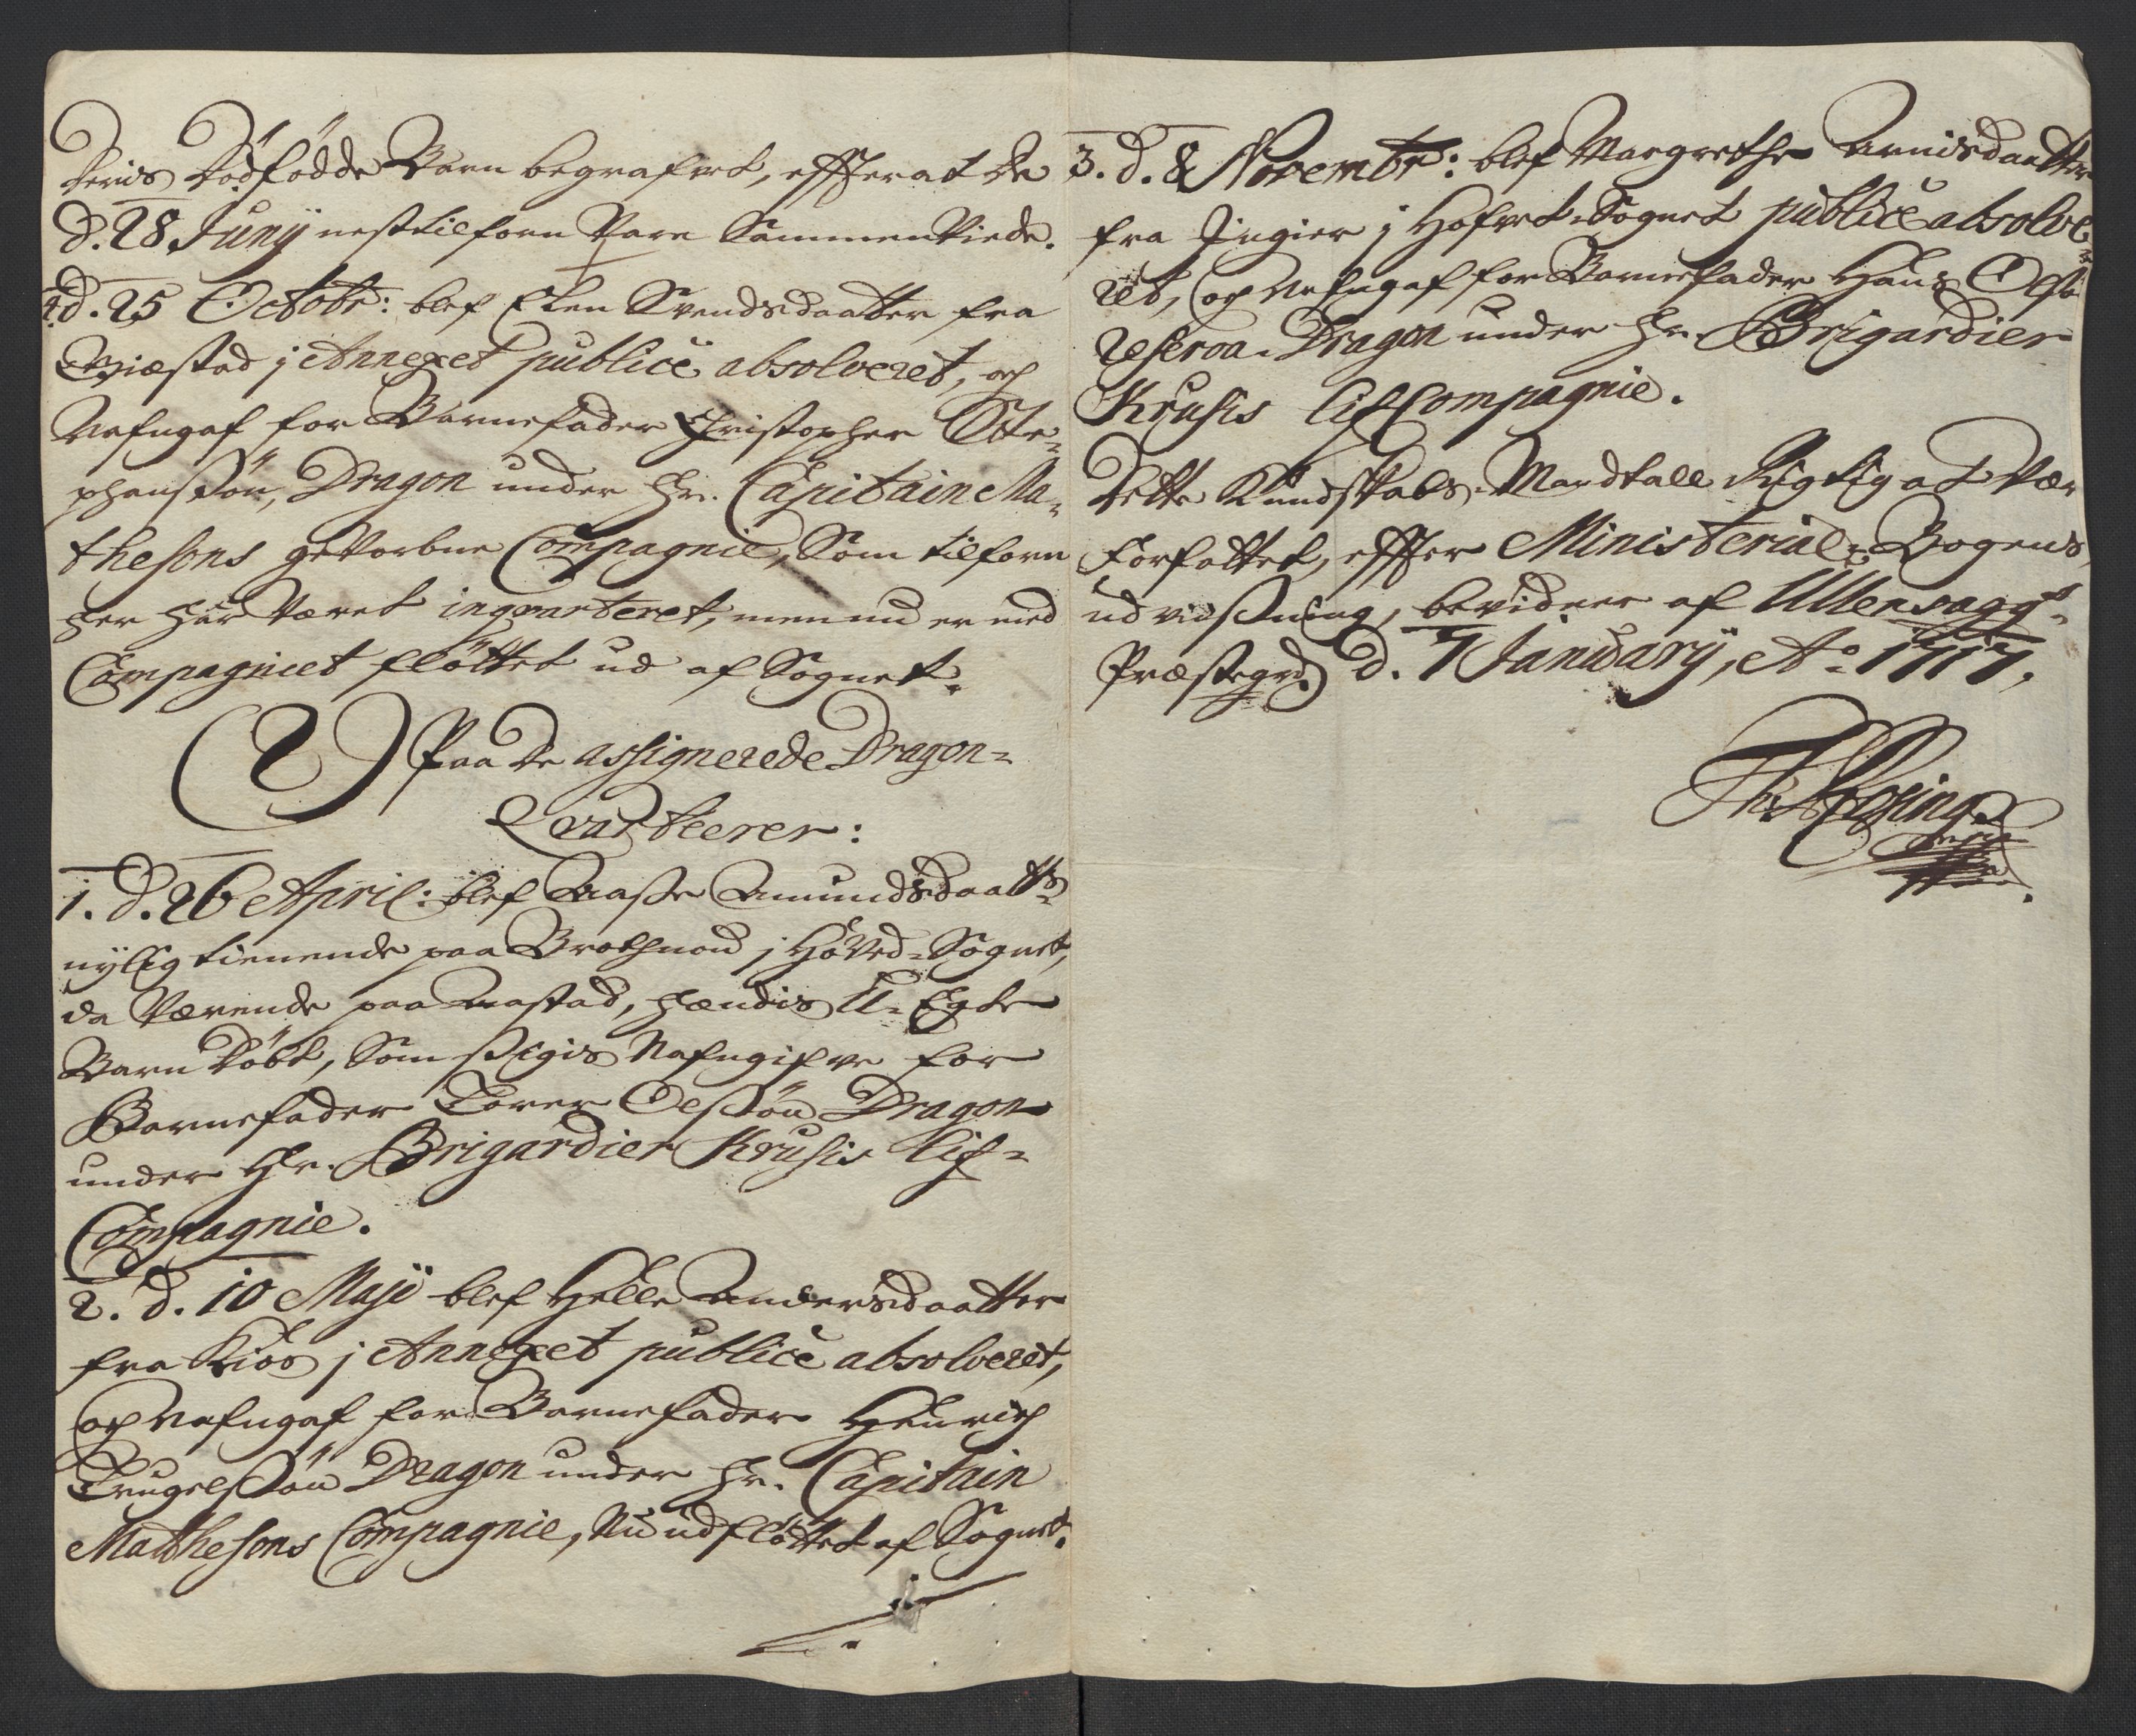 deris dødfødde Barn begrafvet, effterat de
d. 28 Junÿ nest tilforn Vare SammenViede.
4. d. 25 Octobr: blef Elen Svendsdaatter fra
Qviæstad j Annexet publicè absolveret, og
Nafngaf for Barnefader Christopher Ste-
phensSøn, Dragon under Hr. Capitain Ma-
thesons geVorbne Compagnie, Som tilforn
her har Været inqvarteret, men nu er med
Compagniet fløttet ud af Sognet.
Paa de assignerede Dragon-
Qvarteerer:
1. d. 26 April: blef Aasse Amundsdaatt:
nÿlig tienende paa Brothnou j HoVed-Sognet,
da Værende paa Aastad, hændis U-Egte
Barn døbt, Som Sigis Nafngifve for
Barnefader Torer OelsSøn Dragon
under Hr. Brigardier Krusis Lif-
Compagnie.
2. d. 10 Maji blef Helle Andersdaatter
fra Kios j Annexet publicè absolveret,
og Nafngaf for Barnefader Henrich
TrugelsSøn Dragon under Hr. Capitain
Mathesons Compagnie, Nu udfløttet af Sognet.
3. d. 8 Novembr: blef Margrethe Arnisdaatter
fra Jngier j Hofvet-Sognet publicè absolve-
ret, og Nafngaf for Barnefader Hans Ols:
reserva-Dragon under Hr. Brigardier
Krusis LifCompagnie.
Dette Kundskabs-Mandtall Rigtig at Være
Forfattet, effter Ministerial-Bogens
udviisSning, bevidner af Ullensagg:
Præstegrd. d. 7 Januarÿ, Ao 1717.